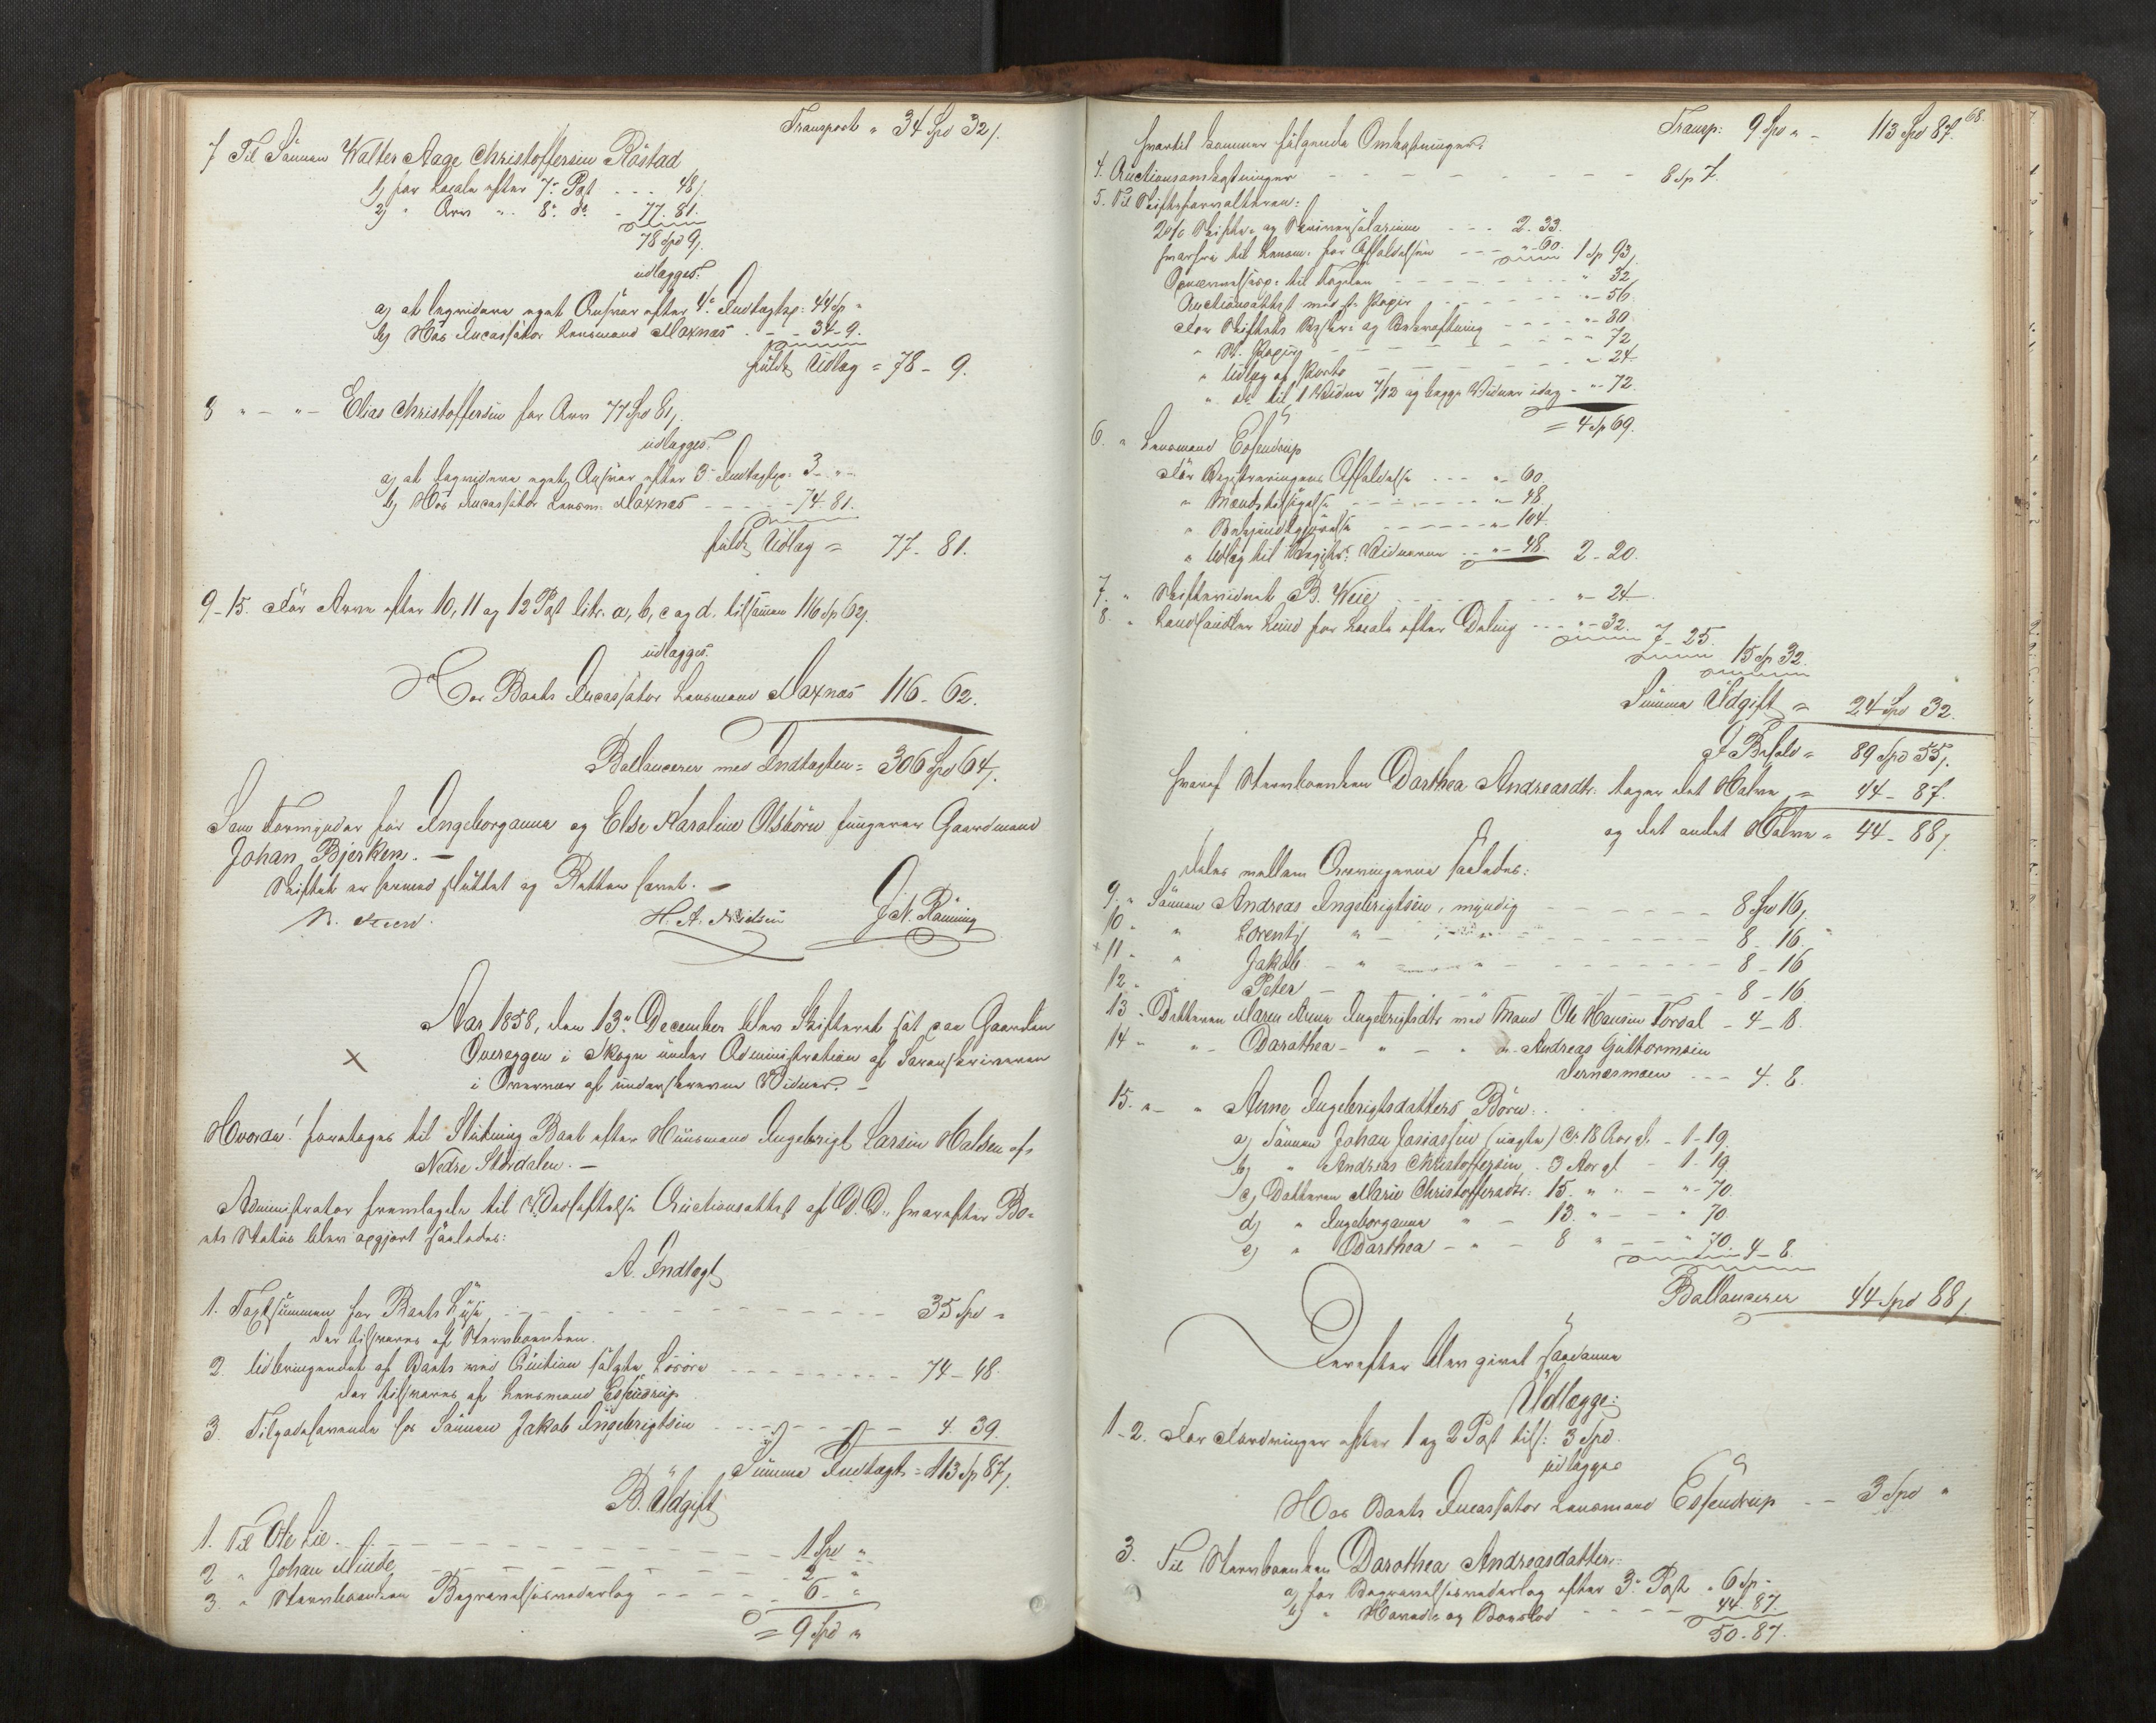 Transport " 34 Spd 32/.
7 Til Sønnen Walter Aage Christoffersen Röstad
1) for Locale efter 7de Post - - - 48/.
2) " Arv " 8de do. - 77. 81.
78 Spd 9/.
udlægges:
a) at liqvidere eget Ansvar efter 4de Indtægtsp: 44 Sp "
b) Hos Incassator Lensmand Maxnæs - - 34 - 9.
fuldt Udlæg = 78 - 9.
8 " - " - Elias Christoffersen for Arv 77 Spd 81/.
udlægges:
a) at liqvidere eget Ansvar efter 3de Indtægtsp. 3 - " -
b) Hos Incassator Lensm: Maxnæs - - - - 74. 81.
fuldt Udlæg = 77 - 81.
9-15. For Arve efter 10, 11 og 12 Post litr. a, b, c og d. tilsammen 116 Sp 62/.
udlægges:
Hos Boets Incassator Lensmand Maxnæs 116 - 62.
Ballancerer med Indtægten = 306 Spd 64/.
Som Formynder for Ingeborganna og Else Karoline Olsbörn fungerer Gaardmand
Johan Bjerken. -
Skiftet er hermed sluttet og Retten hævet. -
H. A. Nielsen J. N. Rönning
Aar 1858, den 13de December blev Skifteret sat paa Gaarden
× Overeggen i Skogn under Administration af Sorenskriveren
i Overvær af underskrevne Vidner. -
Hvorda! foretoges til Slutning Boet efter Huusmand Ingebrigt Larsen Halsen af
Nedre Størdalen. -
Administrator fremlagde til Vedheftelse Auctionsattest af D. D., hvorefter Bo-
ets Status blev opgjort saaledes:
A. Indtægt
1. Taxtsummen for Boets Huse - - - - - - - - 35 Spd "
der tilsvares af Stervboenken.
2. Udbringendet af Boets ved Auction solgte Løsøre - - - - - 74 - 48.
der tilsvares af Lensmand Essendrup
3. Tilgodehavende hos Sønnen Jakob Ingebrigtsen - - - - - 4. 39.
Summa Indtægt = 113 Sp 87/.
B. Udgift
1. Til Ole Lie - - - - - - - 1 Spd "
2 " Johan Minde - - - - - - 2 - "
3. " Stervboenken Begravelsesvederlag - - - - 6 - "
= 9 Spd "
68.
Transp: 9 Spd " - 113 Spd 87.
hvortil kommer følgende Omkostninger:
4. Auctionsomkostninger - - - - - - - 8 Sp 7.
5. Til Skifteforvalteren:
2 % Skifte- og Skriversalarium - - - 2. 33.
herfra til Lensm. for Afholdelsen - - - " - 60. 1 Sp 93/.
Opnævnelsesp. til Vogelen - - - - - " 32.
Auctionsattest med st. Papir - - - - - " - 56.
For Skiftets Beskr: og Bekræftning - - - - " - 80.
" St. Papir - - - - - - - 72
" Udlæg af Porto - - - - - - " 24.
" do til 1 Vidne 7/12 og begge Vidner idag - " - 72.
= 4 Sp 69.
6. " Lensmand Essendrup
For Registreringens Afholdelse - - - " - 60.
" Mænds tilsigelse - - - - - " - 48
" Bekjendtgjørelse - - - - - " - 104.
" Udlæg til Registr: Vidnerne - - " - 48. 2 - 20.
7. " Skiftevidnet B. Weie - - - - - - " - 24.
8. " Landhandler Lund for Locale efter Deling - - - " - 32. 7 - 25.
15 Sp 32.
Summa Udgift = 24 Spd 32.
I Behold = 89 Spd 55/.
hvoraf Stervboenken Dorthea Andreasdtr. tager det Halve, = 44 - 87.
og det andet Halve = 44 - 88/.
deles mellem Arvingerne saaledes:
9. " Sønnen Andreas Ingebrigtsen, myndig - - - - - - 8 Spd 16/.
10 - " Lorents " - " - - - - - - 8 - 16.
× 11 - " Jakob - " - - - - - - 8 - 16
12 - " Peter - - - " - - - - - 8 - 16.
13 - Datteren Maren Anna Ingebrigtsdtr med Mand Ole Hansen Fordal - 4 - 8.
14 " " - Dorothea - " - " " - Andreas Guttormsen
Vernæsmoen - - - 4. 8.
15. " - " Anne Ingebrigtsdatters Börn:
a) Sønnen Johan Josiassen (uægte) Cr 18 Aar gl. - 1 - 19.
b) " Andreas Christoffersen - 3 Aar gl - 1 - 19.
c) Datteren Marie Christoffersdtr: 15. " " - " - 70.
d) " Ingeborganna " - 13. " - " 70.
e) " Dorthea - " - 8 " - - " 70. 4 - 8.
Ballancerer 44 Spd 88/.
Derefter blev givet saadanne
Udlægge:
1-2. For Fordringer efter 1 og 2 Post tils: 3 Spd.
udlægges
Hos Boets Incassator Lensmand Essendrup - - 3 Spd "
3. Til Stervboenken Dorothea Andreasdatter:
a) for Begravelsesvederlag efter 3de Post " 6 Sp "
b) " Hoved- og Boeslod - - - - 44. 87.
50 - 87.